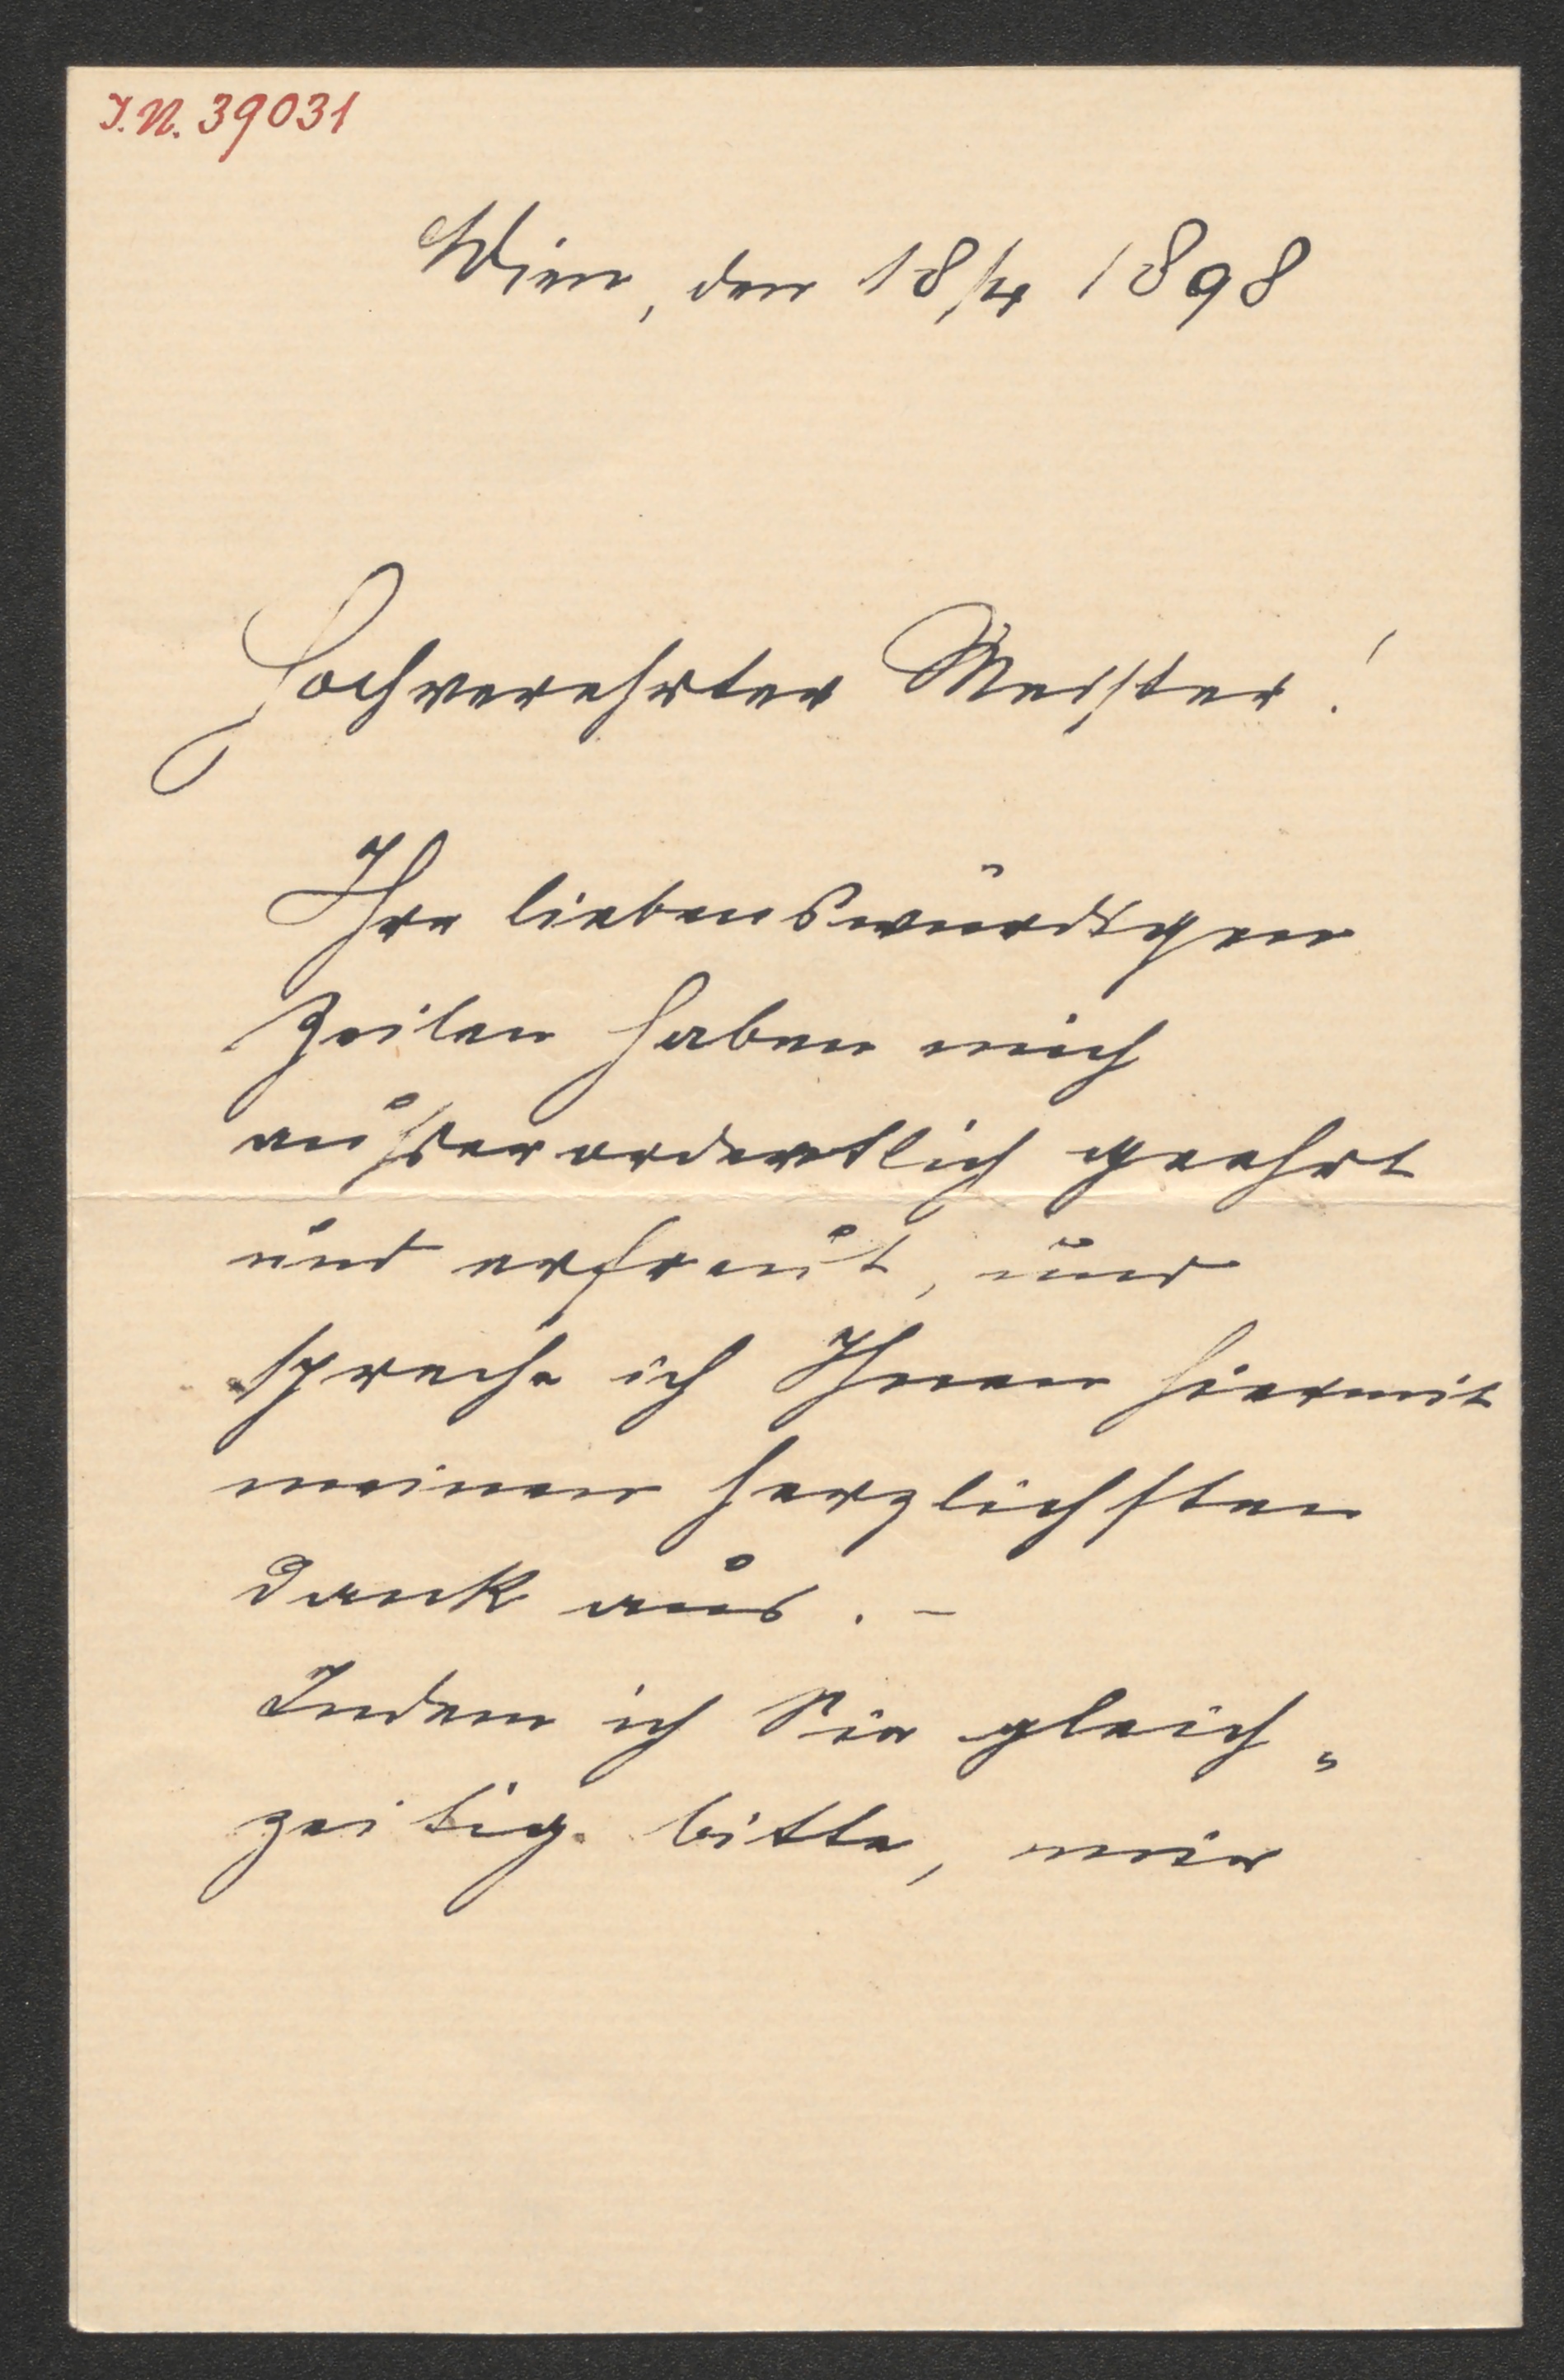 I.N. 39031
Wien, den 18/4 1898
Hochverehrter Meister!
Ihre liebenswürdigen
Zeilen haben mich
außerordentlich geehrt
und erfreut, und
spreche ich Ihnen hiermit
meinen herzlichsten
Dank aus. –
Indem ich Sie gleich„
zeitig bitte, mir